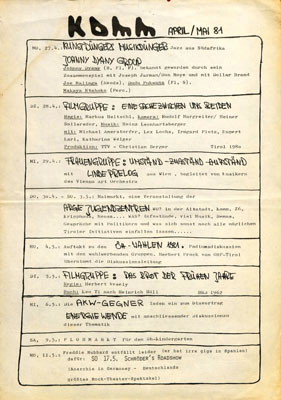 KOMM APRIL/MAI 81
MO, 27.4.: KUNSTDÜNGER MUSIKDÜNGER Jazz aus Südafrika
JOHNNY DYANI GROUP
Johnny Dyani (B, Pi, Fl, bekannt geworden durch sein
Zusammenspiel mit Joseph Jarman/Don Moye und mit Dollar Brand
DI, 28.4.: FILMGRUPPE: EINE SACHE ZWISCHEN UNS BEIDEN
Regie: Markus Heltschl, Kamera: Rudolf Margreiter/ Heiner
mit: Michael Amerstorfer, Lex Lochs, Irmgard Pinta, Rupert
Larl, Katharina Welser
Produktion: TTV - Christian Berger Tirol 1980
MI, 29.4.: FRAUENGRUPPE: UMSTAND - ZUSTAND - AUFSTAND
mit LINDE PRELOG aus Wien, begleitet von Musikern
des Vienna Art Orchestra
DO, 30.4. - SO, 3.5.: Maimarkt, eine Veranstaltung der
ARGE JUGENDZENTREN MUT in der Altstadt, Komm, Z6,
Gespräche mit Politikern und was sich sonst noch alle möglichen
Tiroler Initiativen einfallen lassen.......
MO, 4.5.: Auftakt zu den ÖH-WAHLEN 1981. Podiumsdiskussion
mit den wahlwerbenden Gruppen, Norbert Prock vom ORF-Tirol
übernimmt die Diskussionsleitung
DI, 5.5.: FILMGRUPPE: DAS BROT DER FRÜHEN JAHRE
Regie: Herbert Vesely
Buch: Leo Ti nach Heinrich Böll BRD 1962
MI, 6.5.: die AKW-GEGNER laden ein zum Diavortrag
ENERGIEWENDE mit anschließender Diskussion
dieser Thematik
SA, 9.5.: FLOHMARKT für den Öh-Kindergarten
MO, 11.5.: Freddie Hubbard entfällt leider (er hat irre gigs in Spanien)
dafür: SO 17.5. SCHRÖDER'S ROADSHOW
(Anarchie in Germoney - Deutschlands
größtes Rock-Theater-Spektakel)